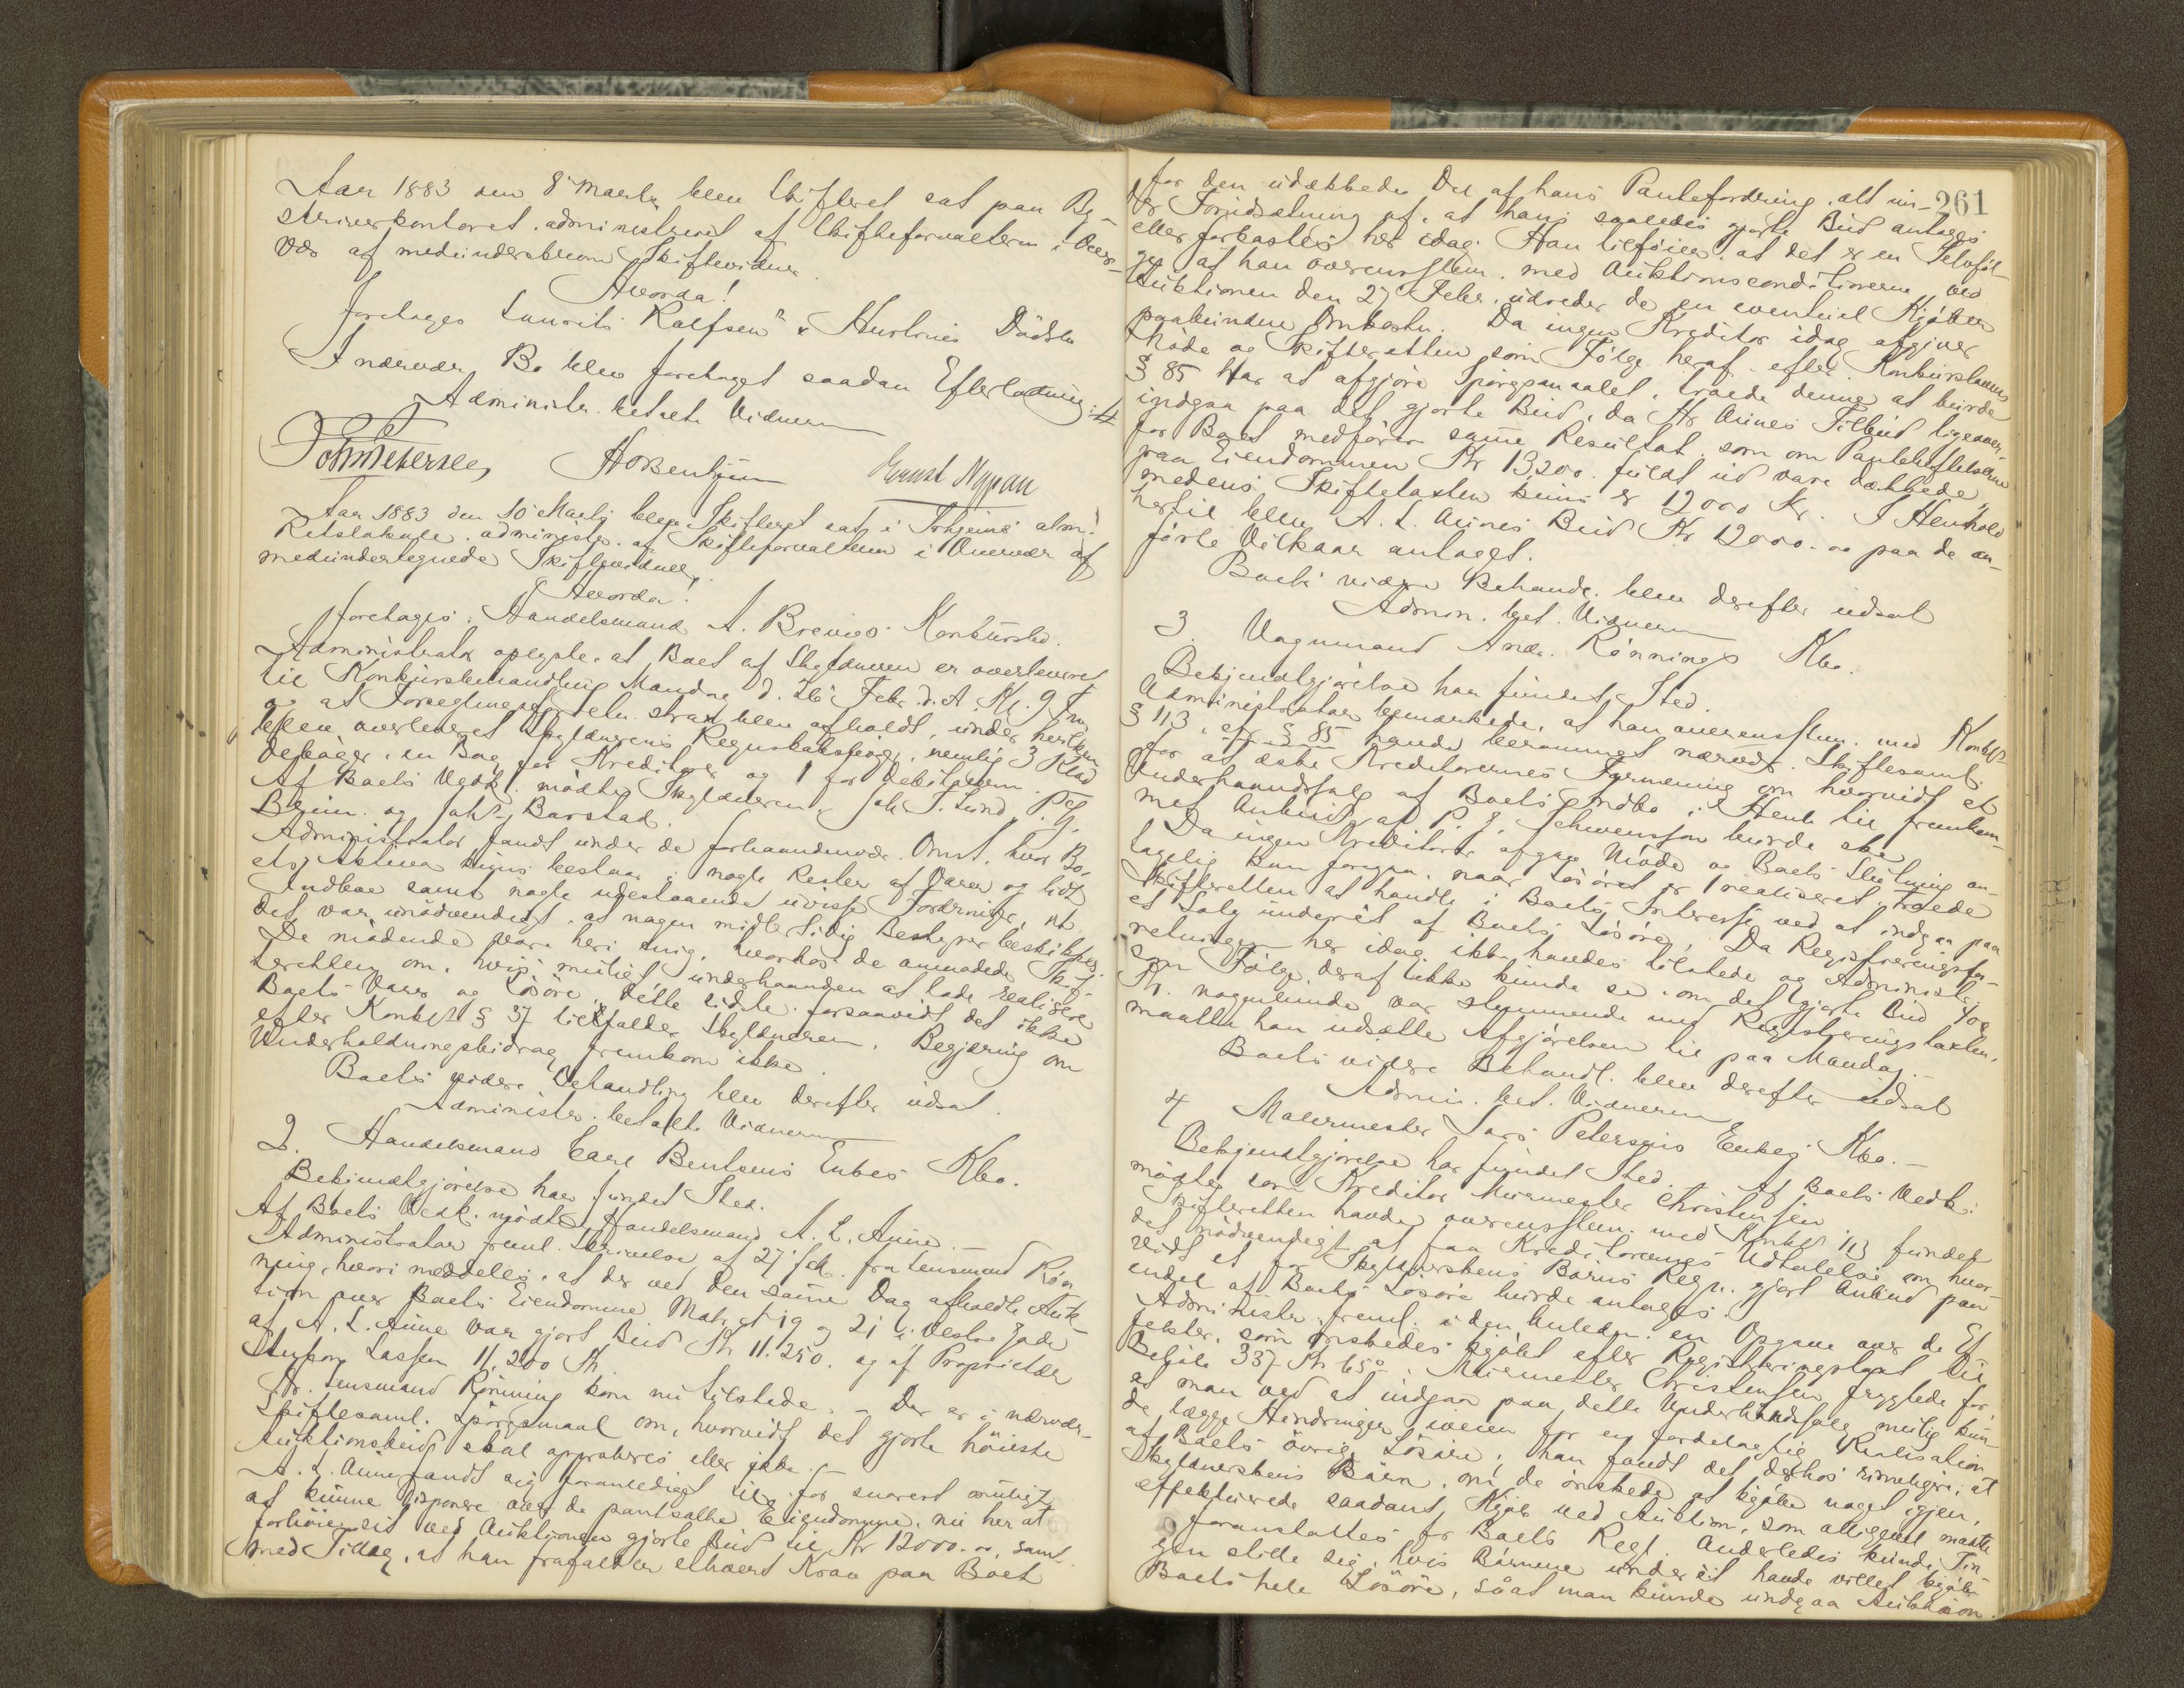 Aar 1883 den 8 Marts blev Skifteret sat paa By-
skriverkontoret, administreret af Skifteforvalteren i Over-
vær af medunderskrevne Skiftevidner.
Hvorda!
foretages Laurits Rolfsen's & Hustrues Dødsbo
I nærvær. Bo blev foretaget saadan Efterlodning:
Administr. betalte Vidnerne
Ernst Nypan
Aar 1883 den 10 Marts blev Skifteret sat i Trhjems alm.
Retslokale, administr. af Skifteforvalteren i Overvær af
medundertegnede Skiftevidner.
Hvorda!
foretages: Handelsmand A. Brevigs Konkursbo.
Administrator oplyste, at Boet af Skyldneren er overleveret
til Konkursbehandling Mandag d. 26 Febr. d. A. Kl. 9 Fm
og at Forseglingsforretn. strax blev afholdt, under hvilken
blev overleveret Skyldnerens Regnskabsbøger, nemlig 3 Klad
debøger, en Bog for Kreditorer og 1 for Debitorer.
Af Boets Vedk. mødte Skyldneren, Joh. S. Lund, P. G.
Bruun og Sakf. Barstad.
Administrator fandt under de forhaandenvær. Omst. hvor Bo-
ets Aktiva kuns bestaar i nogle Rester af Varer og lidt
Indboe samt nogle udestaaende uvisse Fordringer, at
det var unødvendigt, at nogen midlertidig Bestyrer beskikkes.
De mødende vare heri enig, hvorhos de anmodede Skif-
teretten om, hvis muligt underhaanden at lade realisere
Boets Varer og Løsøre, dette sidste forsaavidt det ikke
efter Konkl. § 37 tilfalder Skyldneren. Begjæring om
Underholdningsbidrag fremkom ikke.
Boets videre Behandling blev derefter udsat.
Administr. betalte Vidnerne
2. Handelsmand Carl Bentsens Enkes Kbo.
Bekjendtgjørelse har fundet Sted.
Af Boets Vedk. mødte Handelsmand A. L. Aune.
Administrator freml. Skrivelse af 27 Febr. fra Lensmand Røn
ning, hvori meddeles, at der ved den samme Dag afholdte Auk-
tion over Boets Eiendomme Matr. No 19 og 21 i Vestre Gade
af A. L. Aune var gjort Bud Kr 11.250. og af Proprietær
Lassen 11.200 Kr.
Hr. Lensmand Rønning kom nu tilstede. – Der er i nærvær.
Skiftesaml. Spørgsmaal om, hvorvidt det gjorte høieste
Auktionsbud skal approberes eller ikke. –
A. L. Aune fandt sig foranlediget til, for snarest muligt
at kunne disponere over de pantsatte Eiendomme, nu her at
forhøie sit ved Auktionen gjorte Bud til Kr 12000.00, samt
med Tillæg, at han frafalder ethvert Krav paa Boet
261
for den udækkede Del af hans Pantefordring, alt un-
der Forudsætning af, at hans saaledes gjorte Bud antages
eller forkastes her idag. Han tilføier, at det er en Selvføl-
ge, at han overensstem. med Auktionsconditionerne ved
Auktionen den 27 Febr. udreder de en eventuel Kjøber
paahvilende Omkostn. Da ingen Kreditor idag afgiver
Møde og Skifteretten som Følge heraf efter Konkurslovens
§ 85 har at afgjøre Spørgsmaalet, troede denne at burde
indgaa paa det gjorte Bud, da Hr Aunes Tilbud ligeover-
for Boet medfører samme Resultat, som om Pantheftelserne
paa Eiendommen Kr 13,200 fuldt ud vare dækkede,
medens Skiftetaxten kuns er 12000 Kr. I Henhold
hertil blev A. L. Aunes Bud Kr 12000.00 paa de an-
førte Vilkaar antaget.
Boets videre Behandl. blev derefter udsat
Admin. bet. Vidnerne
3. Vognmand Andr. Rønnings Kbo.
Bekjendtgjørelse har fundet Sted.
Administrator bemærkede, at han overensstem. med Konkl.
§ 113, cfr § 85 havde berammet nærvær. Skiftesaml.
for at æske Kreditorernes Formening om hvorvidt et
Underhaandssalg af Boets Indbo i Henh. til fremkom-
met Anbud af P. J. Schwensson burde ske.
Da ingen Kreditorer afgav Møde og Boets Slutning an-
tagelig kan foregaa, naar Løsøret er realiseret, troede
Skifteretten at handle i Boets Interesse ved at indgaa paa
et Salg underet af Boets Løsøre. Da Registreringsfor-
retningen her idag ikke havdes tilstede og Administr.
som Følge deraf ikke kunde se, om det gjorte Bud 400
Kr. nogenlunde var stemmende med Registreringstaxten,
maatte han udsætte Afgjørelsen til paa Mandag. –
Boets videre Behandl. blev derefter udsat
Admin. bet. Vidnerne
4 Malermester Lars Petersens Enkes Kbo. –
Bekjendtgjørelse har fundet Sted. Af Boets Vedk.
mødte som Kreditor Murmester Christensen
Skifteretten havde overensstem. med Konkl. 113 fundet
det nødvendigt at faa Kreditorernes Udtalelse om hvor-
vidt et for Skyldnerskens Børns Regn. gjort Anbud paa
endel af Boets Løsøre burde antages.
Administr. freml. i den Anledn. en Opgave over de Ef
fekter, som ønskedes kjøbt efter Registreringstaxt til
Beløb 337 Kr 65 ø. Murmester Christensen frygtede for
at man ved at indgaa paa dette Underhaandssalg mulig kun-
de lægge Hindringer iveien for en fordelagtig Realisation
af Boets øvrige Løsøre; han fandt det derhos rimeligere, at
Skyldnerskens Børn, om de ønskede at kjøbe noget igjen,
effektuerede saadant Kjøb ved Auktion, som alligevel maatte
foranstaltes for Boets Regn. Anderledes kunde Tin-
gen stille sig, hvis Børnene underet havde villet kjøbe
Boets hele Løsøre, såat man kunde undgaa Auktion.